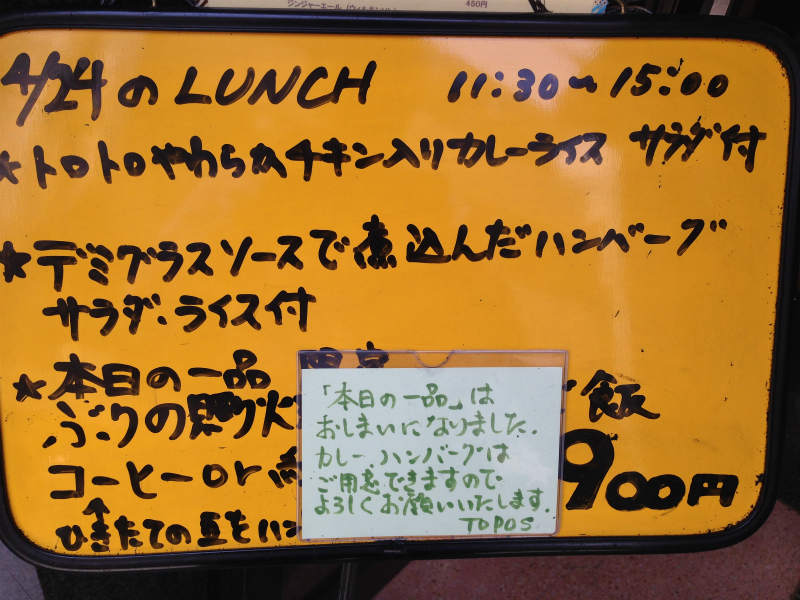 450円
4/24のLUNCH 11:30〜15:00
★トロトロやわらかチキン入りカレーライス サラダ付
★デミグラスソースで煮込んだハンバーグ
サラダ、ライス付
★本日の一品
ぶりの照り火 ご飯
コーヒーor
900円
ひきたての豆をハン
「本日の一品」は
おしまいになりました。
カレー ハンバーグは
ご用意できますので
よろしくお願いいたします。
TOPOS